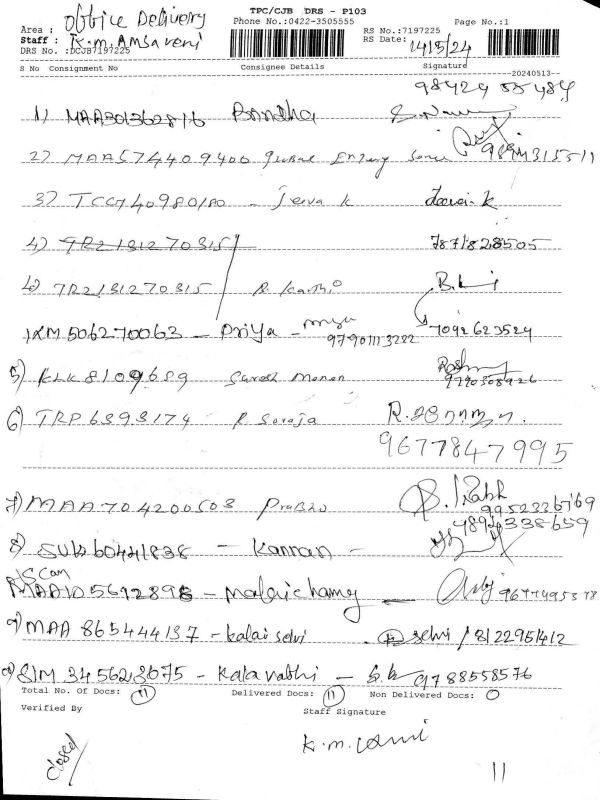 TPC/CJB DRS - P103
Area : office Delivery
Phone No.:0422-3505555
Page No.:1
Staff : K.m.Amsaveni
RS No.:7197225
DRS No. :DCJB7197225
RS Date: 14/5/24
S No Consignment No Consignee Details Signature
--20240513--
98424 55484
1) MAA301362816 Brindha
2) MAA574409400 Global Energy
9894315511
3) TCG740980180 - Jeeva k
4) TR2131270315
7871828505
4) TR2131270315 R. Karthi
KM506270063 - Priya - 9790113222 7092623529
5) KLK8109659 Suresh Menon 9790308926
6) TRP6393174 R Soroja
9677847995
7) MAA704200503 Prabhu
9952336769
8) - Kannan - 338659
MAA105612898 - Malaichamy 9677495378
9) MAA 865444137 - kalai selvi selvi / 8122951412
SIM 345623075 - Kalavathi - 9788558576
Total No. Of Docs: 11 Delivered Docs: 11 Non Delivered Docs: 0
Verified By Staff Signature
closed
11